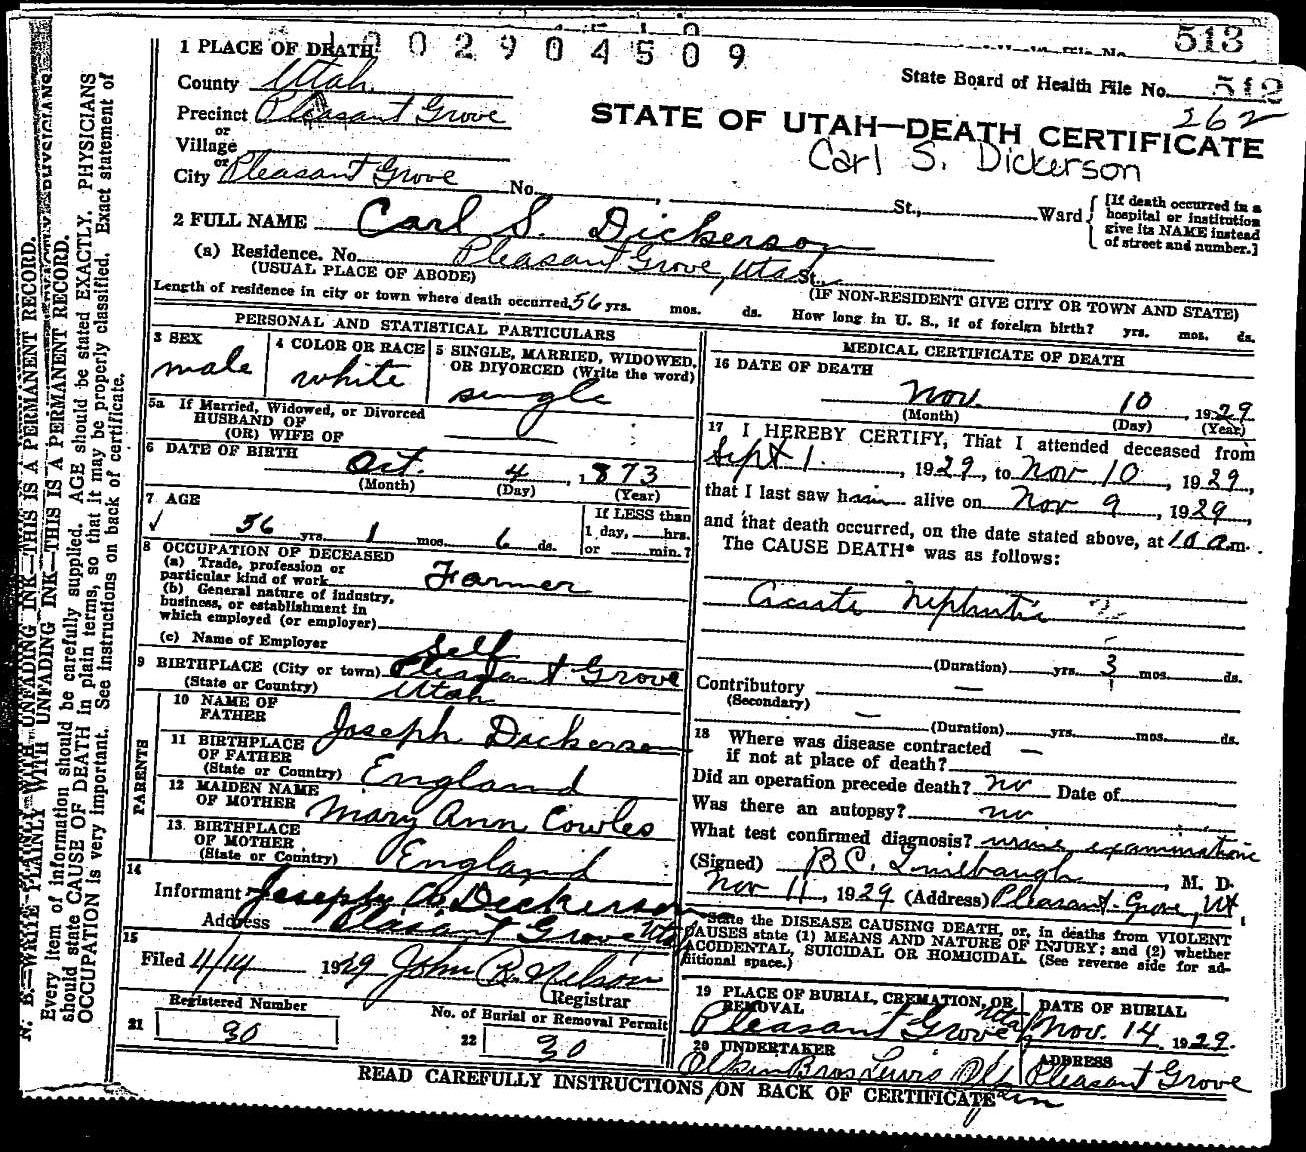 513
1 0 0 2 9 0 4 5 0 9
State Board of Health File No. 512
262
STATE OF UTAH—DEATH CERTIFICATE
Carl S. Dickerson
1 PLACE OF DEATH
County Utah
Precinct Pleasant Grove
or
Village
or
City Pleasant Grove No. , St., Ward
[If death occurred in a hospital or institution give its NAME instead of street and number.]
2 FULL NAME Carl S. Dickerson
(a) Residence. No. Pleasant Grove, Utah St.,
(USUAL PLACE OF ABODE) (IF NON-RESIDENT GIVE CITY OR TOWN AND STATE)
Length of residence in city or town where death occurred 56 yrs. mos. ds. How long in U. S., if of foreign birth? yrs. mos. ds.
PERSONAL AND STATISTICAL PARTICULARS
3 SEX
male
4 COLOR OR RACE
white
5 SINGLE, MARRIED, WIDOWED, OR DIVORCED (Write the word)
single
5a If Married, Widowed, or Divorced
HUSBAND OF
(OR) WIFE OF
6 DATE OF BIRTH
Oct. 4, 1873
(Month) (Day) (Year)
7 AGE
56 yrs. 1 mos. 6 ds.
If LESS than
1 day, hrs.
or min.?
8 OCCUPATION OF DECEASED
(a) Trade, profession or
particular kind of work Farmer
(b) General nature of industry,
business, or establishment in
which employed (or employer)
(c) Name of Employer Self
9 BIRTHPLACE (City or town) Pleasant Grove
(State or Country) Utah
PARENTS
10 NAME OF
FATHER Joseph Dickerson
11 BIRTHPLACE
OF FATHER
(State or Country) England
12 MAIDEN NAME
OF MOTHER Mary Ann Cowles
13. BIRTHPLACE
OF MOTHER
(State or Country) England
14
Informant Joseph A Dickerson
Address Pleasant Grove Utah
15
Filed 4/14 1929 John R. Nelson
Registrar
Registered Number
21 30
No. of Burial or Removal Permit
22 30
MEDICAL CERTIFICATE OF DEATH
16 DATE OF DEATH
Nov. 10, 1929
(Month) (Day) (Year)
17 I HEREBY CERTIFY, That I attended deceased from
Sept 1, 1929, to Nov 10, 1929,
that I last saw him alive on Nov 9, 1929,
and that death occurred, on the date stated above, at 10 a m.
The CAUSE DEATH* was as follows:
Acute Nephritis
(Duration) yrs. 3 mos. ds.
Contributory —
(Secondary)
— (Duration) yrs. mos. ds.
18 Where was disease contracted
if not at place of death? —
Did an operation precede death? no Date of
Was there an autopsy? no
What test confirmed diagnosis? urine examination
(Signed) B.C. Linebaugh, M. D.
Nov 11, 1929 (Address) Pleasant Grove, Ut
*State the DISEASE CAUSING DEATH, or, in deaths from VIOLENT
CAUSES state (1) MEANS AND NATURE OF INJURY; and (2) whether
ACCIDENTAL, SUICIDAL OR HOMICIDAL. (See reverse side for additional space.)
19 PLACE OF BURIAL, CREMATION, OR
REMOVAL
Pleasant Grove Utah
DATE OF BURIAL
Nov. 14 1929.
20 UNDERTAKER
Olpin Bros Lewis Olpin
ADDRESS
Pleasant Grove
READ CAREFULLY INSTRUCTIONS ON BACK OF CERTIFICATE
N. B.—WRITE PLAINLY WITH UNFADING INK—THIS IS A PERMANENT RECORD.
Every item of information should be carefully supplied. AGE should be stated EXACTLY. PHYSICIANS
should state CAUSE OF DEATH in plain terms, so that it may be properly classified. Exact statement of
OCCUPATION is very important. See instructions on back of certificate.